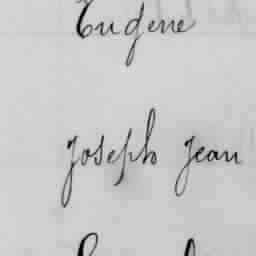 Eugene
Joseph Jean